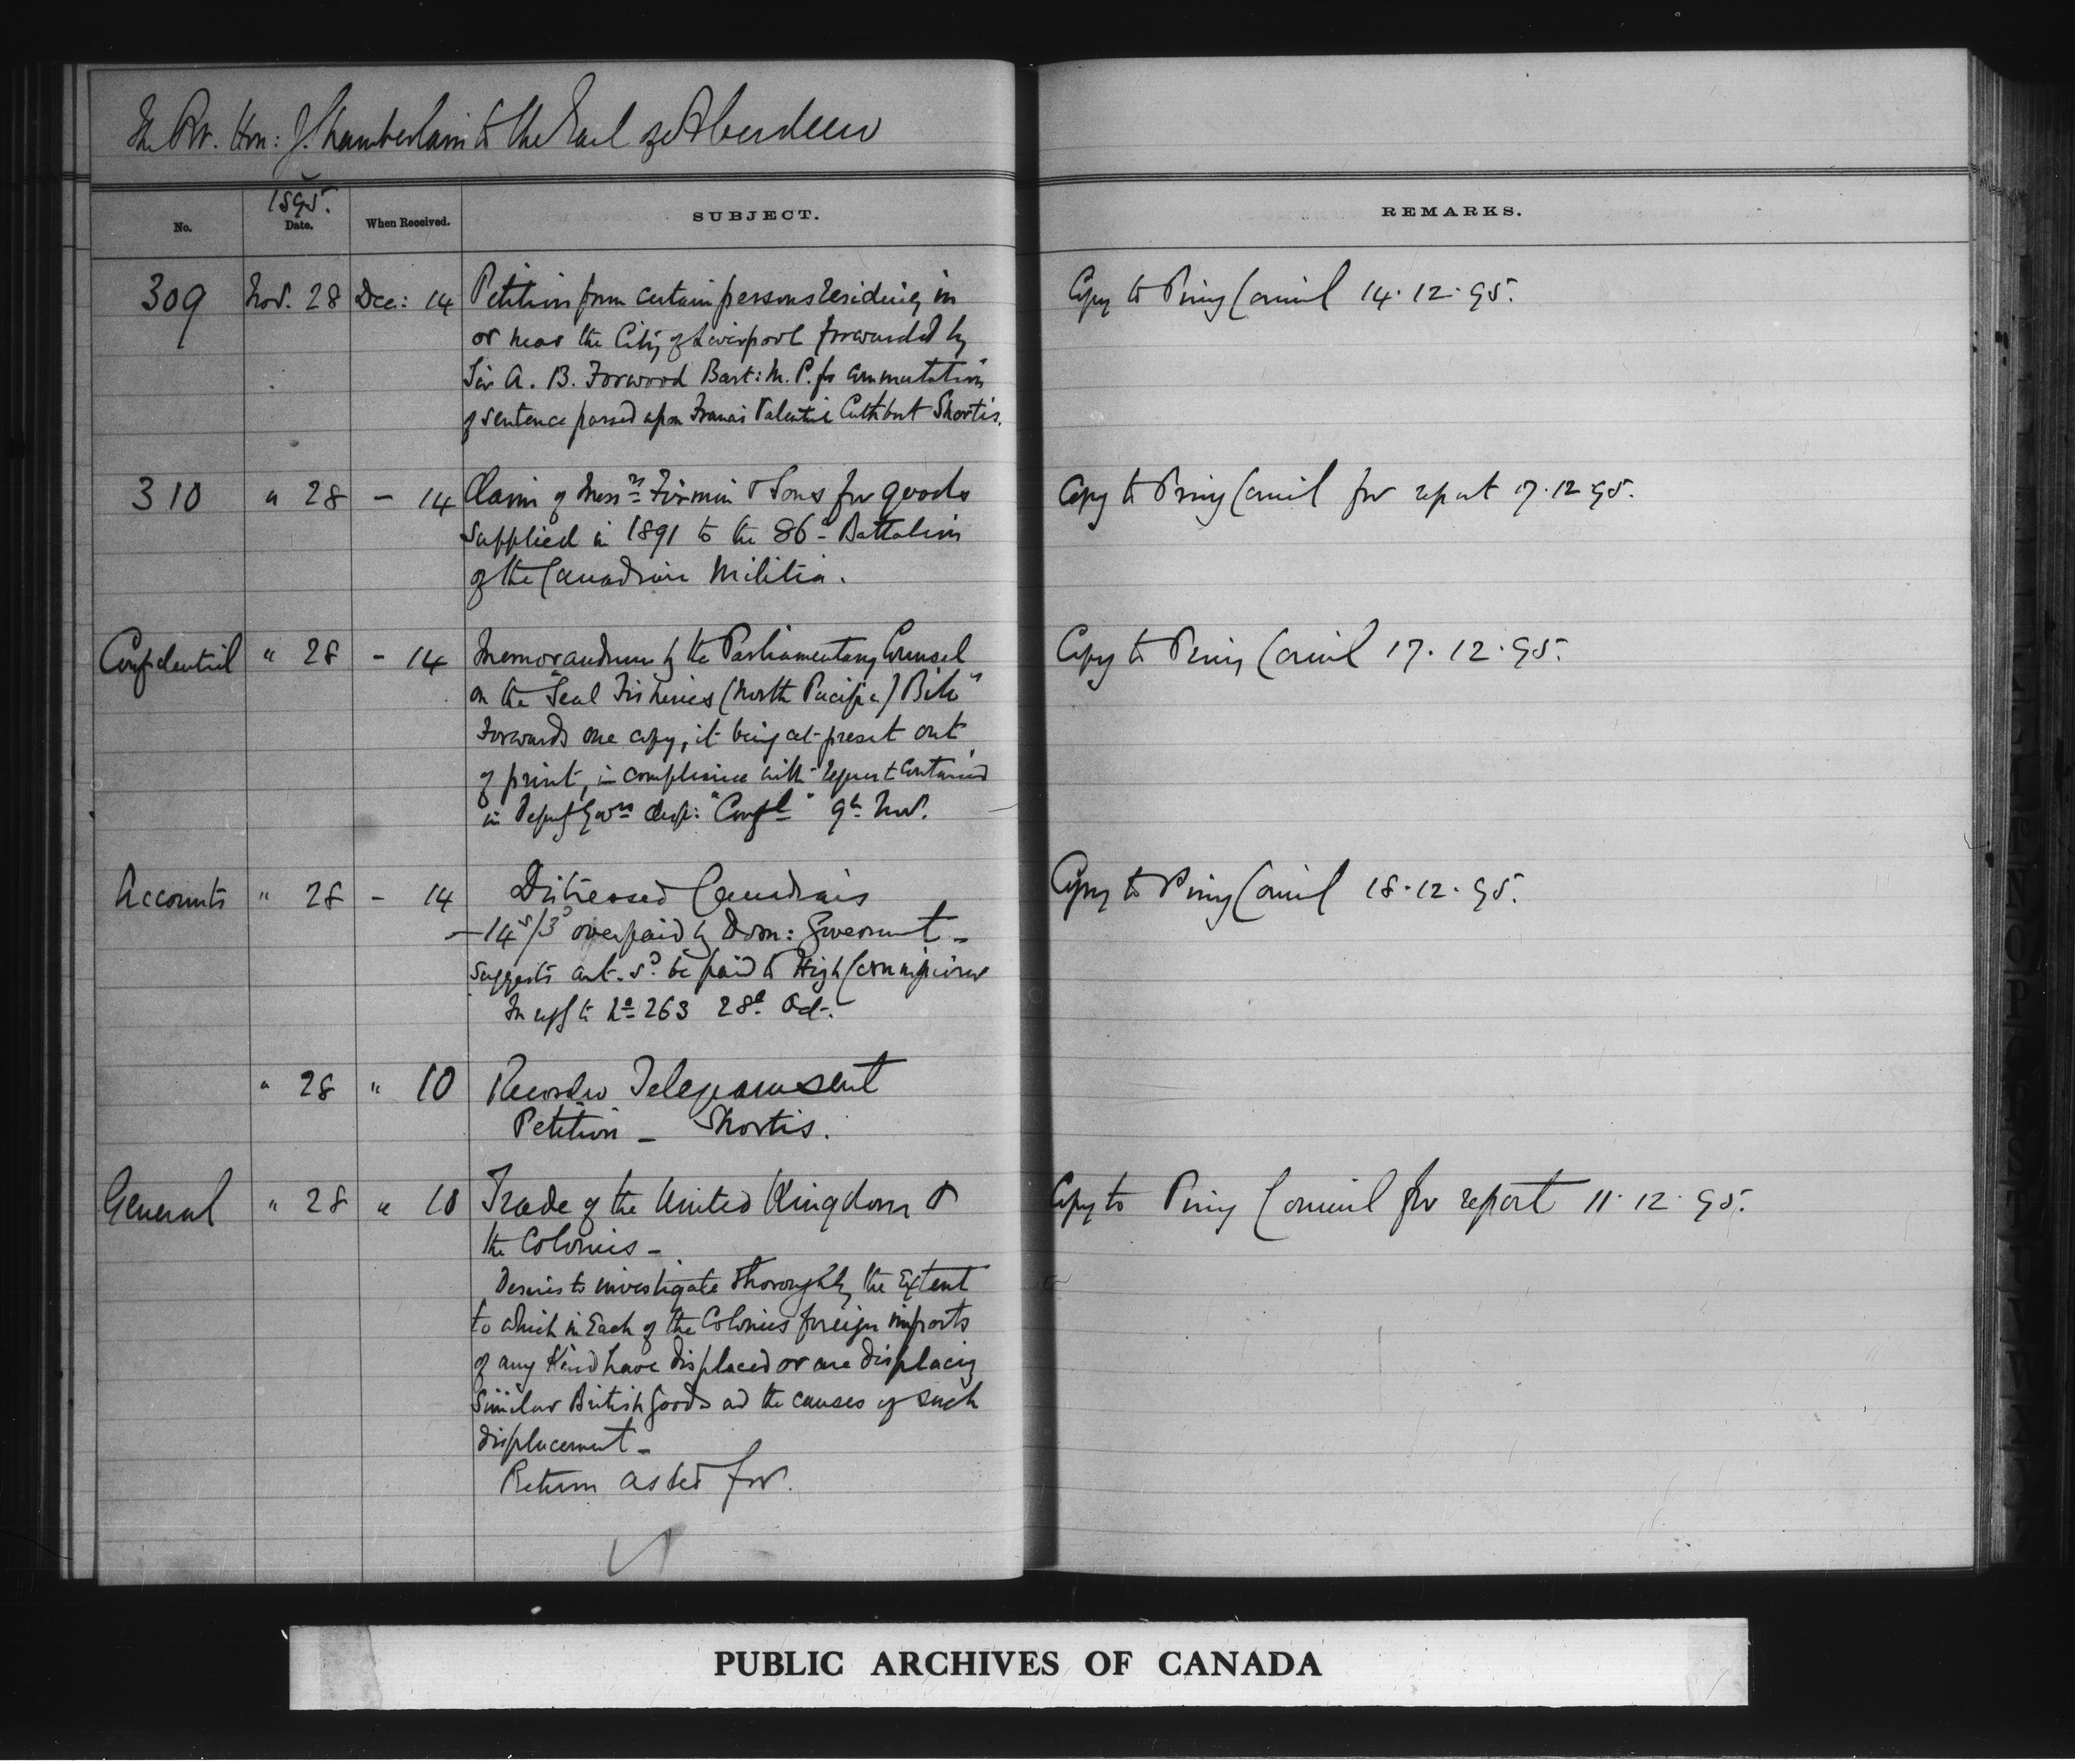 The Rt. Hon: J. Chamberlain to the Earl of Aberdeen
1895.
No. Date. When Received. SUBJECT. REMARKS.
309 Nov. 28 Dec: 14 Petition from certain persons residing in Copy to Privy Council 14.12.95.
or near the City of Liverpool forwarded by
Sir A. B. Forwood Bart: M.P. for commutation
of sentence passed upon Francis Valentine Cuthbert Shortis.
310 " 28 - 14 Claim of Messrs Firmin & Sons for goods Copy to Privy Council for report 17.12.95.
supplied in 1891 to the 86th Battalion
of the Canadian Militia.
Confidential " 28 - 14 Memorandum by the Parliamentary Counsel Copy to Privy Council 17.12.95.
on the "Seal Fisheries (North Pacific) Bill"
Forwards one copy, it being at present out
of print, in compliance with request contained
in Deputy Govrs desp: "Confl" 9th Nov.
Accounts " 28 - 14 Distressed Canadians Copy to Privy Council 18.12.95.
- 14s/3d overpaid by Dom: Government -
suggests amt. sd. be paid to High Commissioner
In reply to No 263 28th Oct.
" 28 " 10 Records Telegram sent
Petition - Shortis.
General " 28 " 10 Trade of the United Kingdom & Copy to Privy Council for report 11.12.95.
the Colonies -
Desires to investigate thoroughly the Extent
to which in Each of the Colonies foreign imports
of any Kind have displaced or are displacing
similar British Goods and the causes of such
displacement -
Return asked for.
PUBLIC ARCHIVES OF CANADA